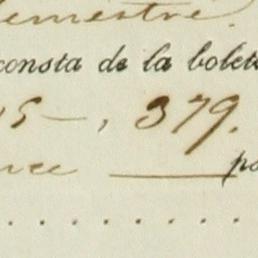 emestre.
consta de la bolet
5 —, 379.
nce — pa